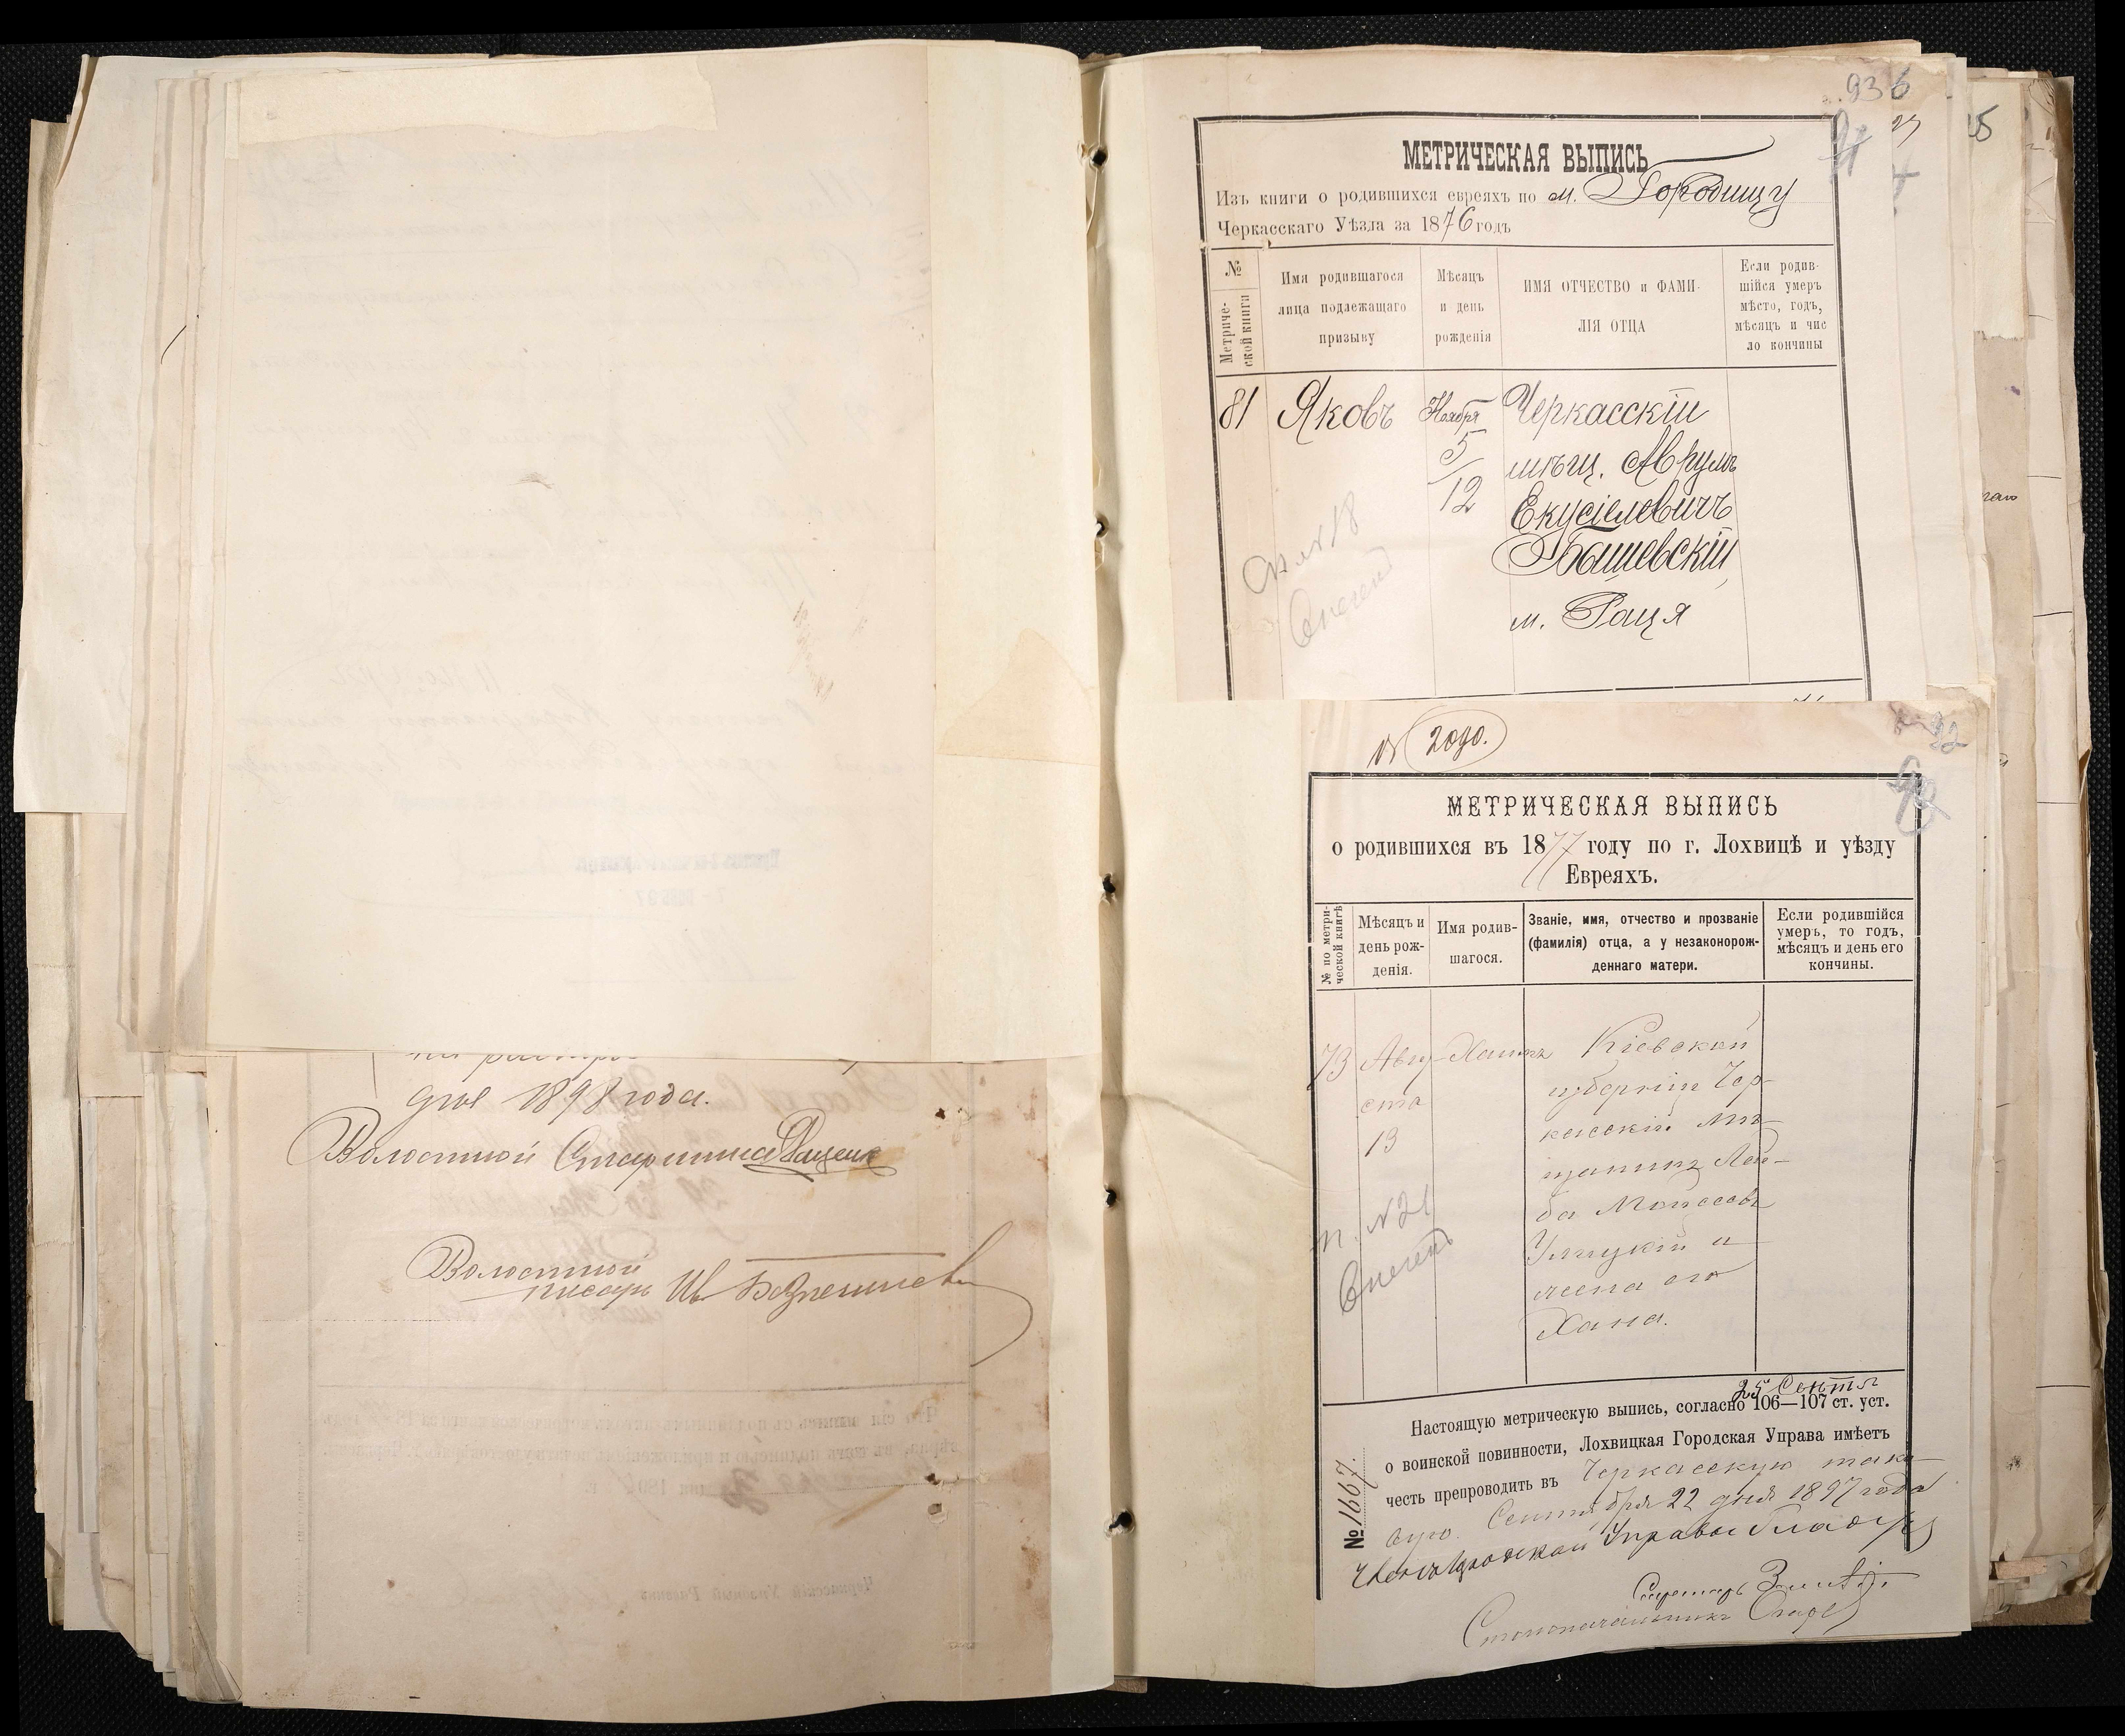 дня 1898 года.
Волостной Старшина
Волостной
писарь Ив
936
МЕТРИЧЕСКАЯ ВЫПИСЬ
Изъ книги о родившихся евреяхъ по м. Городищу
Черкасскаго Уѣзда за 1876 годъ
№
Метриче-
ской книги
Имя родившагося
лица подлежащаго
призыву
Мѣсяцъ
и день
рожденія
ИМЯ ОТЧЕСТВО и ФАМИ-
ЛІЯ ОТЦА
Если родив-
шійся умеръ
мѣсто, годъ,
мѣсяцъ и чис
ло кончины
81 Яковъ Ноября Черкасскій
5 мѣщ. Аврумъ
12 Екусіелевичъ
Бышевскій
м. Рацея
18
Внесенъ
92
МЕТРИЧЕСКАЯ ВЫПИСЬ
о родившихся въ 1877 году по г. Лохвицѣ и уѣзду
Евреяхъ.
№ по метри-
ческой книгѣ
Мѣсяцъ и
день рож-
денія.
Имя родив-
шагося.
Званіе, имя, отчество и прозваніе
(фамилія) отца, а у незаконорож-
деннаго матери.
Если родившійся
умеръ, то годъ,
мѣсяцъ и день его
кончины.
73 Авгу- Кіевской
ста губерніи Чер-
13 касскій мѣ-
щанинъ Лей-
ба Мойсеевъ
Улицкій и
жена его
Хана.
п. №21
Внесенъ
25 Сентя
Настоящую метрическую выпись, согласно 106—107 ст. уст.
о воинской повинности, Лохвицкая Городская Управа имѣетъ
честь препроводить въ Черкасскую тако-
вую. Сентября 22 дня 1897 года
№ 1667.
Членъ Городской Управы
Секретарь
Столоначальникъ